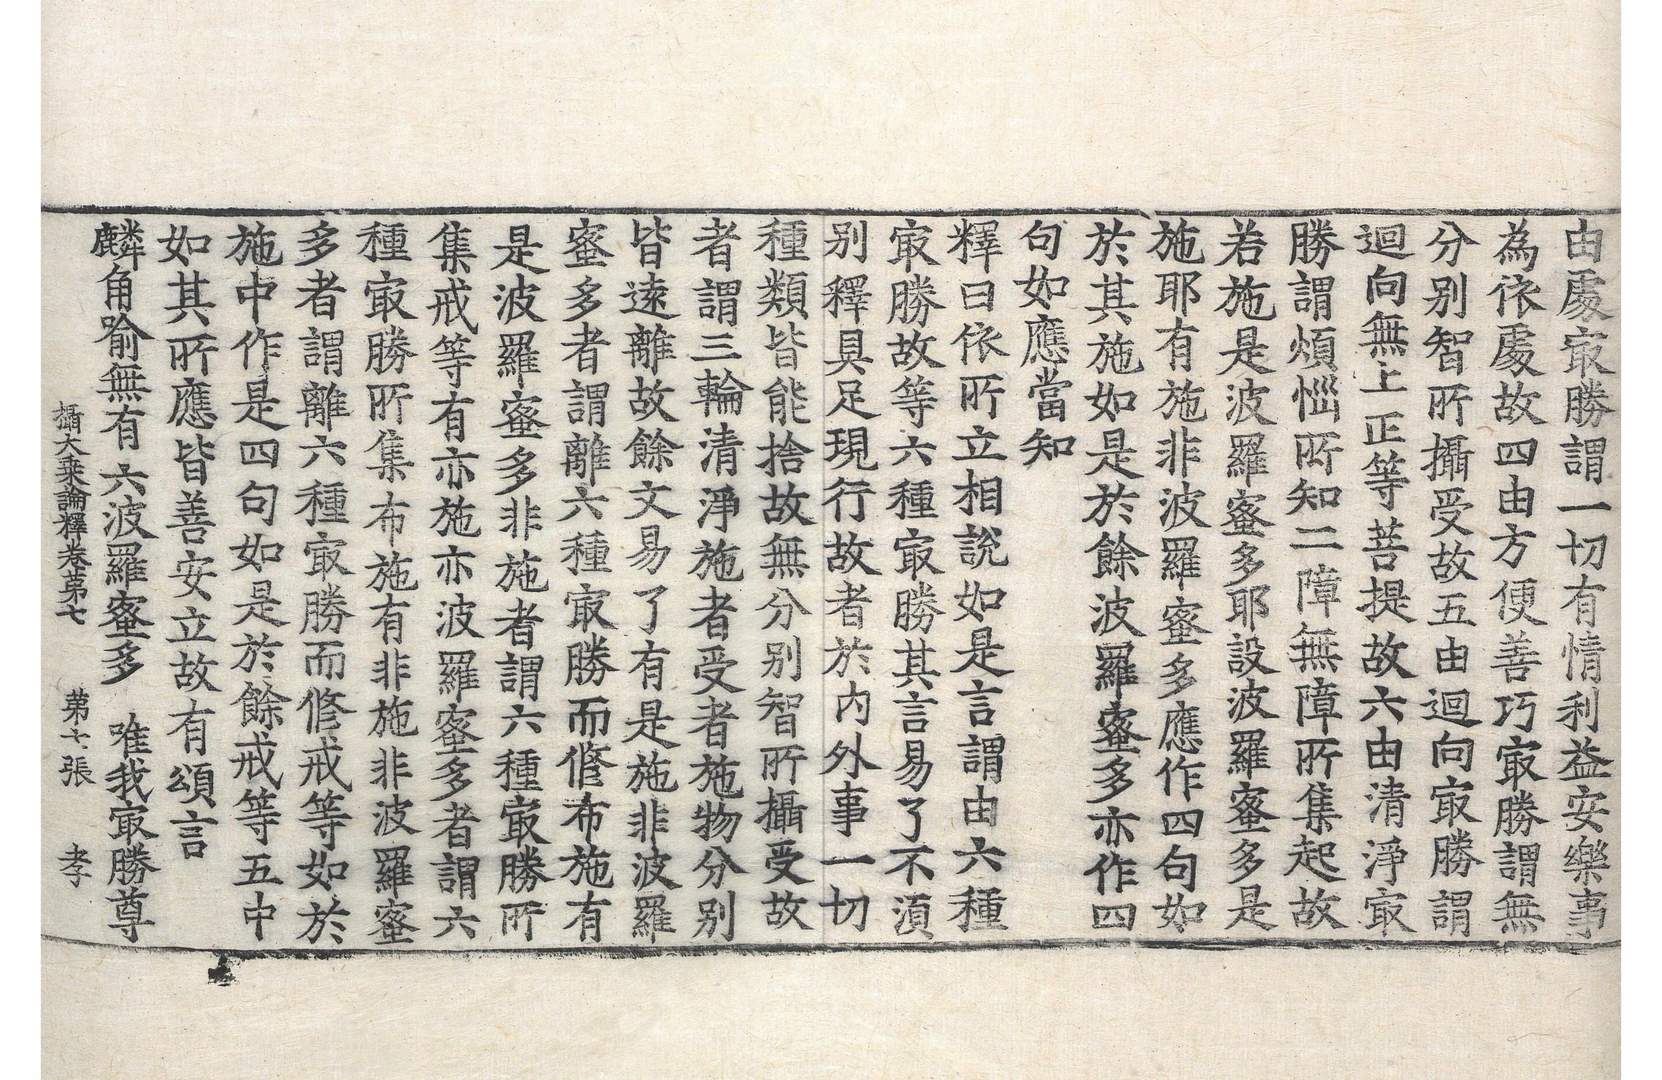 由處㝡勝謂一切有情利益安樂事
為依處故四由方便善巧㝡勝謂無
分别智所攝受故五由迴向㝡勝謂
迴向無上正等菩提故六由清淨㝡
勝謂煩惱所知二障無障所集起故
若施是波羅蜜多耶設波羅蜜多是
施耶有施非波羅蜜多應作四句如
於其施如是於餘波羅蜜多亦作四
句如應當知
釋曰依所立相說如是言謂由六種
㝡勝故等六種㝡勝其言易了不湏
别釋具足現行故者於内外事一切
種類皆能捨故無分别智所攝受故
者謂三輪清淨施者受者施物分别
皆遠離故餘文易了有是施非波羅
蜜多者謂離六種㝡勝而修布施有
是波羅蜜多非施者謂六種㝡勝所
集戒等有亦施亦波羅蜜多者謂六
種㝡勝所集布施有非施非波羅蜜
多者謂離六種㝡勝而修戒等如於
施中作是四句如是於餘戒等五中
如其所應皆善安立故有頌言
麟角喻無有六波羅蜜多　唯我㝡勝尊
攝大乘論釋卷第七　第七張　孝